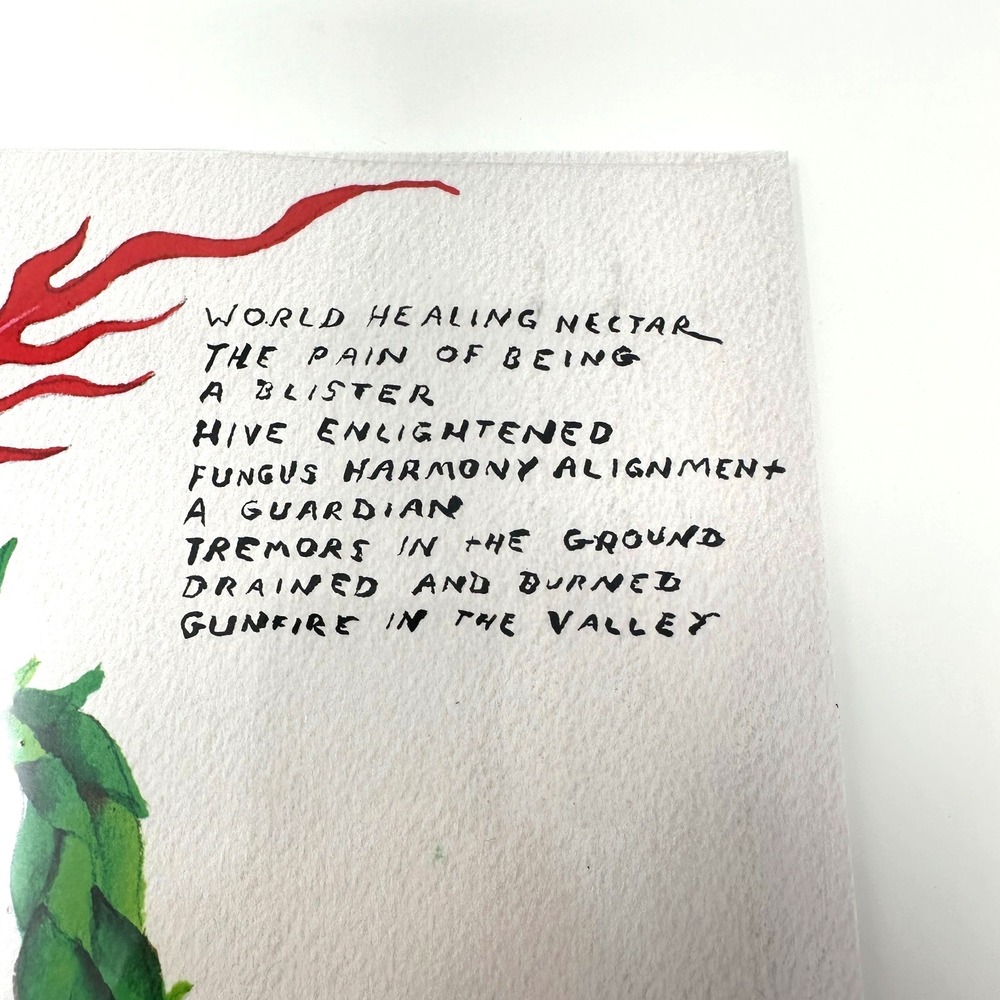 WORLD HEALING NECTAR
THE PAIN OF BEING
A BLISTER
HIVE ENLIGHTENED
FUNGUS HARMONY ALIGNMENT
A GUARDIAN
TREMORS IN THE GROUND
DRAINED AND BURNED
GUNFIRE IN THE VALLEY